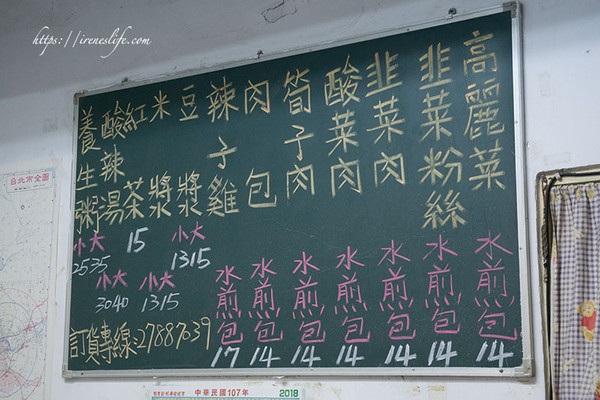 https://ireneslife.com
高麗菜水煎包14
韭菜粉絲水煎包14
韭菜肉水煎包14
酸菜肉水煎包14
筍子肉水煎包14
肉包水煎包14
辣子雞水煎包17
豆漿小大1315
米漿小大1315
紅茶15
酸辣湯小大3040
養生粥小大2535
訂貨專線:27887039
台北市全圖
中華民國107年 2018